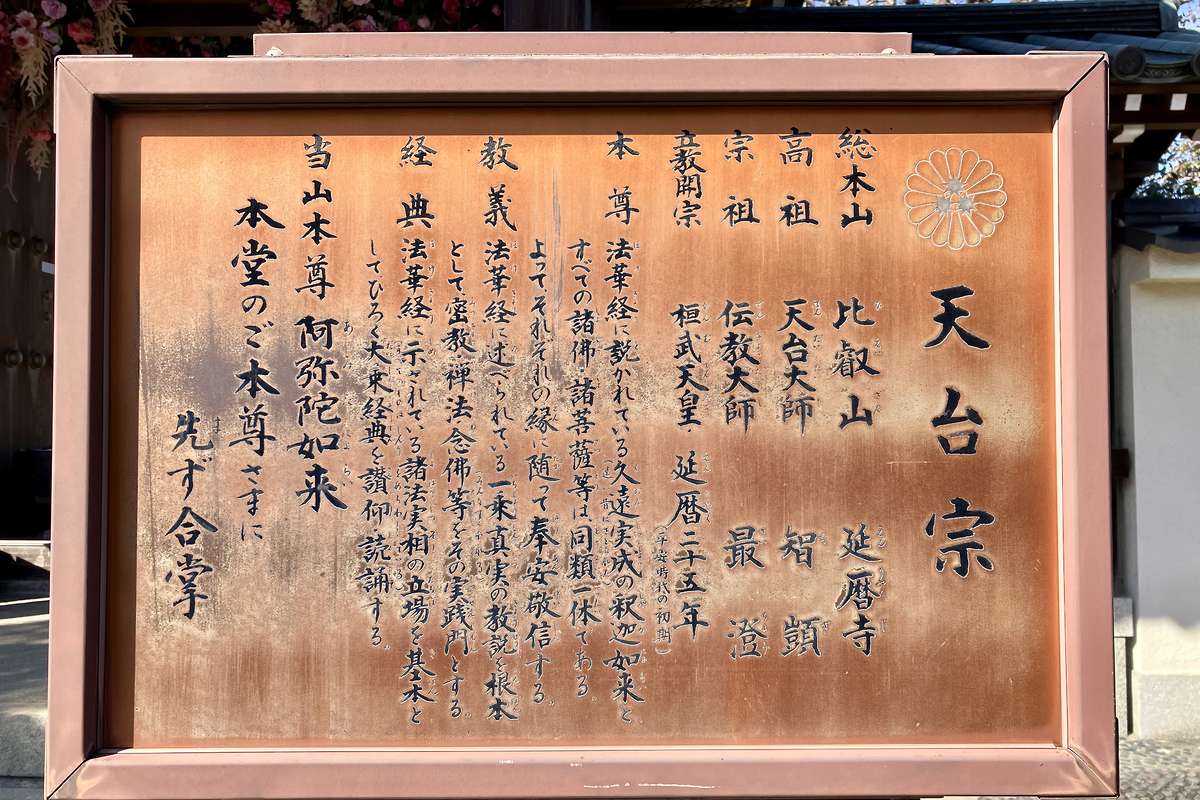 天台宗
総本山 比叡山 延暦寺
高祖 天台大師 智顗
宗祖 伝教大師 最澄
立教開宗 桓武天皇・延暦二十五年
(平安時代の初期)
本尊 法華経に説かれている久遠実成の釈迦如来と
すべての諸佛・諸菩薩等は、同類一体である。
よってそれぞれの縁に随って奉安敬信する。
教義 法華経に述べられている一乗真実の教説を根本
として密教・禅法・念佛等をその実践門とする。
経典 法華経に示されている諸法実相の立場を基本と
してひろく大乗経典を讃仰・読誦する。
当山本尊 阿弥陀如来
本堂のご本尊さまに
先ず合掌